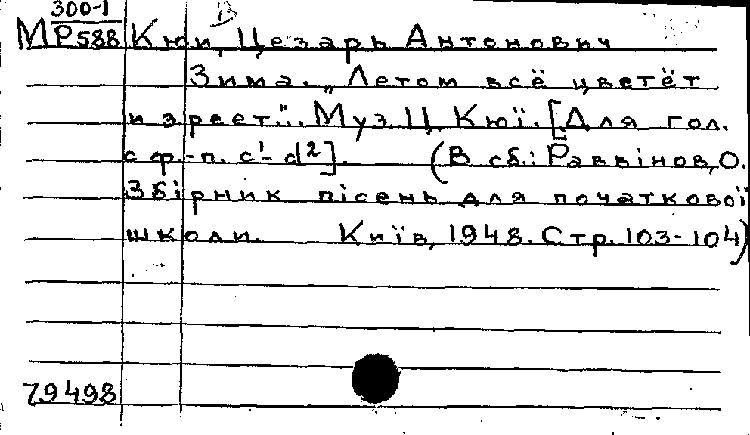 300-1 В
МР588 Кюи, Цезарь Антонович
Зима. „Летом всё цветёт
и зреет.". Муз. Ц. Кюї. [Для гол.
с ф.-п. c¹-d²]. (В сб.: Раввінов, О.
Збірник пісень для початкової
школи. Київ, 1948. Стр. 103-104)
79498